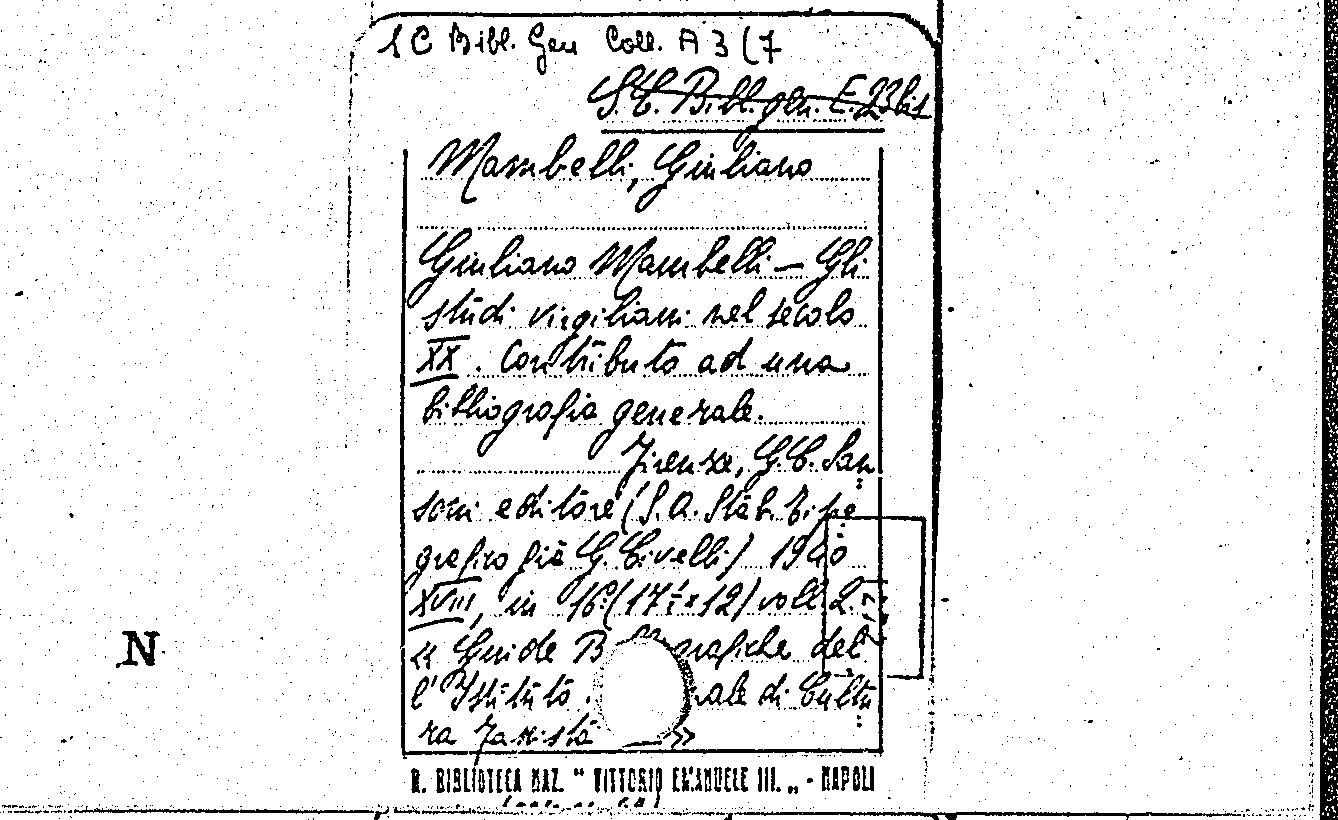 SC Bibl. Gen Coll. A 3 (7
S.C. Bibl. gen. E. 23 bis
Mambelli, Giuliano
Giuliano Mambelli — Gli
studi virgiliani nel secolo
XX. Contributo ad una
bibliografia generale.
Firenze, G. C. San
soni editore (S. A. Stab. Tipo
grafico già G. Civelli) 1940
XVIII, in 16° (17 × 12) voll. 2.
« Guide B grafiche del
l'Istituto nale di Cultu
ra Fascista »
N
R. BIBLIOTECA NAZ. " VITTORIO EMANUELE III. „ - NAPOLI